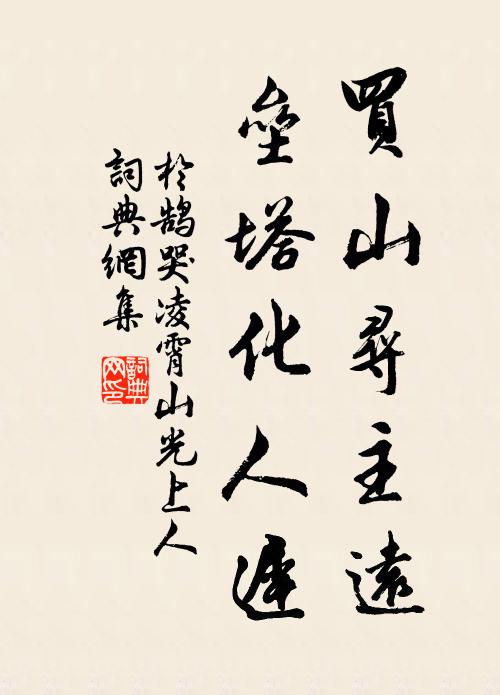 買山尋主遠
壘塔化人遲
於鵠哭凌霄山光上人
詞典網集
詞典
网印